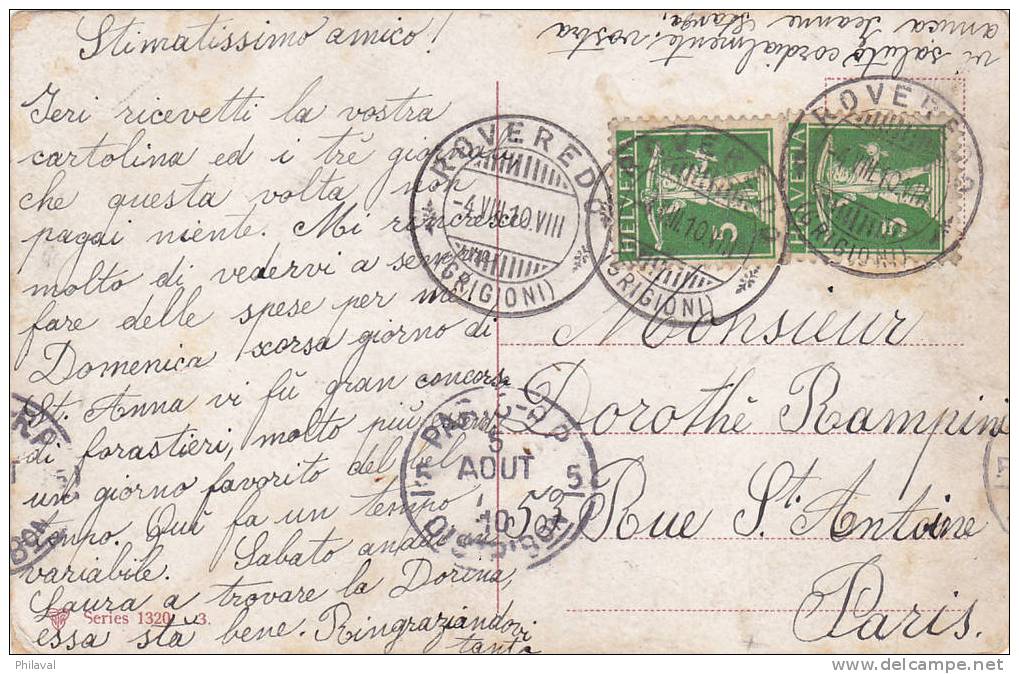 Stimatissimo amico!
Ieri ricevetti la vostra
cartolina ed i tré giornali
che questa volta non
pagai niente. Mi rincresce
molto di vedervi a sempre
fare delle spese per me
Domenica scorsa giorno di
St. Anna vi fù gran concorso
di forastieri, molto più
un giorno favorito del bel
tempo. Qui fa un tempo
variabile. Sabato andai
Laura a trovare la Dorina,
essa stà bene. Ringraziandovi
tanto
vi saluto cordialmente. vostra
amica Jeanne
ROVEREDO
-4.VIII.10.VIII
(GRIGIONI)
HELVETIA
5
ROVEREDO
-4.VIII.10.VIII
(GRIGIONI)
HELVETIA
5
ROVEREDO
-4.VIII.10.VIII
(GRIGIONI)
Monsieur
Dorothé Rampini
53 Rue St. Antoine
Paris.
5
AOUT
5
10
DISTRIBON
Series 1320 3.
Philaval
www.delcampe.net